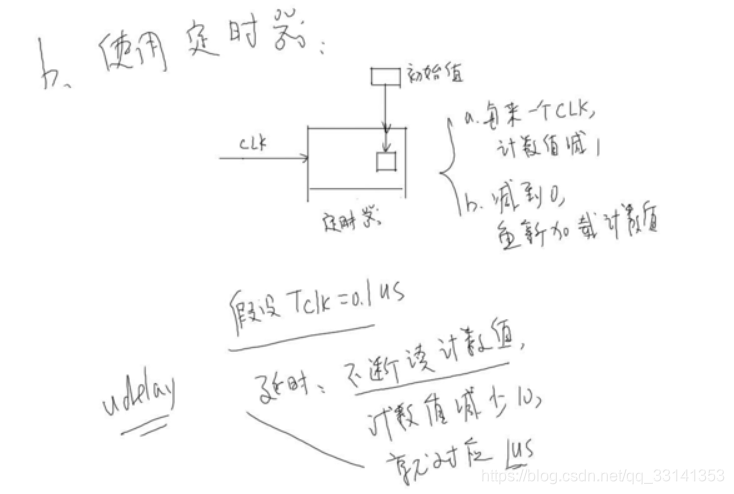 b、使用定时器:
初始值
CLK
定时器
a. 每来一个CLK,
计数值减1
b. 减到0,
重新加载计数值
假设 Tclk=0.1us
udelay
延时: 不断读计数值,
计数值减少10,
就对应1us
https://blog.csdn.net/qq_33141353